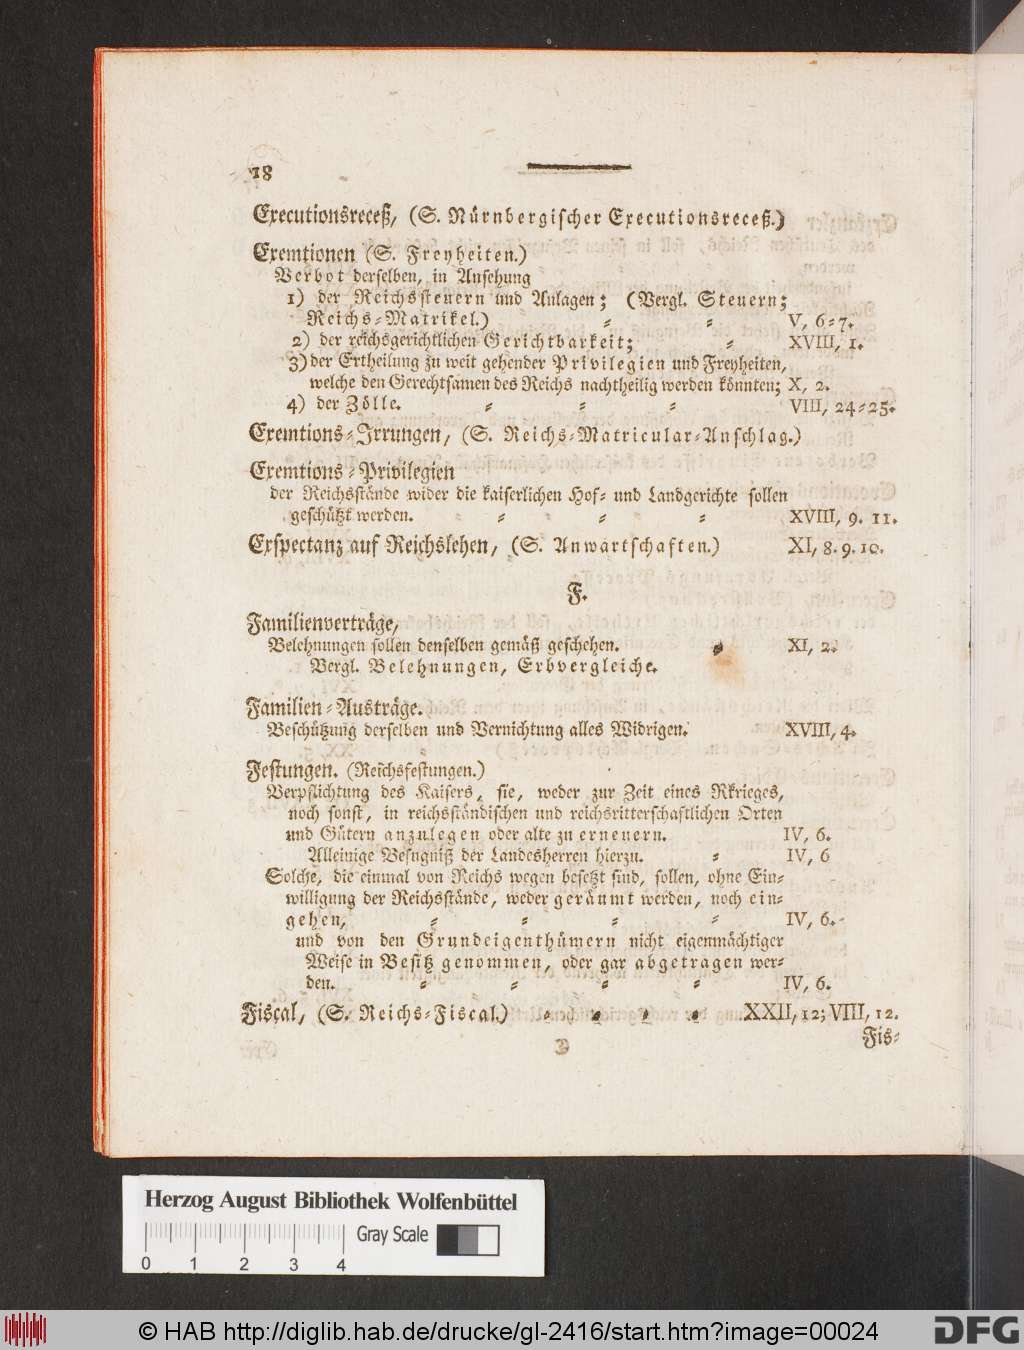 18
Executionsreceß, (S. Nürnbergischer Executionsreceß.)
Exemtionen (S. Freyheiten.)
Verbot derselben, in Ansehung
1) der Reichssteuern und Anlagen; (Vergl. Steuern;
Reichs-Matrikel.) - - V, 6-7.
2) der reichsgerichtlichen Gerichtbarkeit; - XVIII, 1.
3) der Ertheilung zu weit gehender Privilegien und Freyheiten,
welche den Gerechtsamen des Reichs nachtheilig werden könnten; X, 2.
4) der Zölle. - - - VIII, 24-25.
Exemtions-Irrungen, (S. Reichs-Matricular-Anschlag.)
Exemtions-Privilegien
der Reichsstände wider die kaiserlichen Hof- und Landgerichte sollen
geschützt werden. - - - XVIII, 9. 11.
Exspectanz auf Reichslehen, (S. Anwartschaften.) XI, 8. 9. 10.
F.
Familienverträge,
Belehnungen sollen denselben gemäß geschehen. - XI, 2.
Vergl. Belehnungen, Erbvergleiche.
Familien-Austräge.
Beschützung derselben und Vernichtung alles Widrigen. XVIII, 4.
Festungen. (Reichsfestungen.)
Verpflichtung des Kaisers, sie, weder zur Zeit eines Rkrieges,
noch sonst, in reichsständischen und reichsritterschaftlichen Orten
und Gütern anzulegen oder alte zu erneuern. IV, 6.
Alleinige Befugniß der Landesherren hierzu. - IV, 6
Solche, die einmal von Reichs wegen besetzt sind, sollen, ohne Ein-
willigung der Reichsstände, weder geräumt werden, noch ein-
gehen, - - - - IV, 6.
und von den Grundeigenthümern nicht eigenmächtiger
Weise in Besitz genommen, oder gar abgetragen wer-
den. - - - - IV, 6.
Fiscal, (S. Reichs-Fiscal.) - - - - XXII, 12; VIII, 12.
Fis-
Herzog August Bibliothek Wolfenbüttel
Gray Scale
0 1 2 3 4
© HAB http://diglib.hab.de/drucke/gl-2416/start.htm?image=00024
DFG